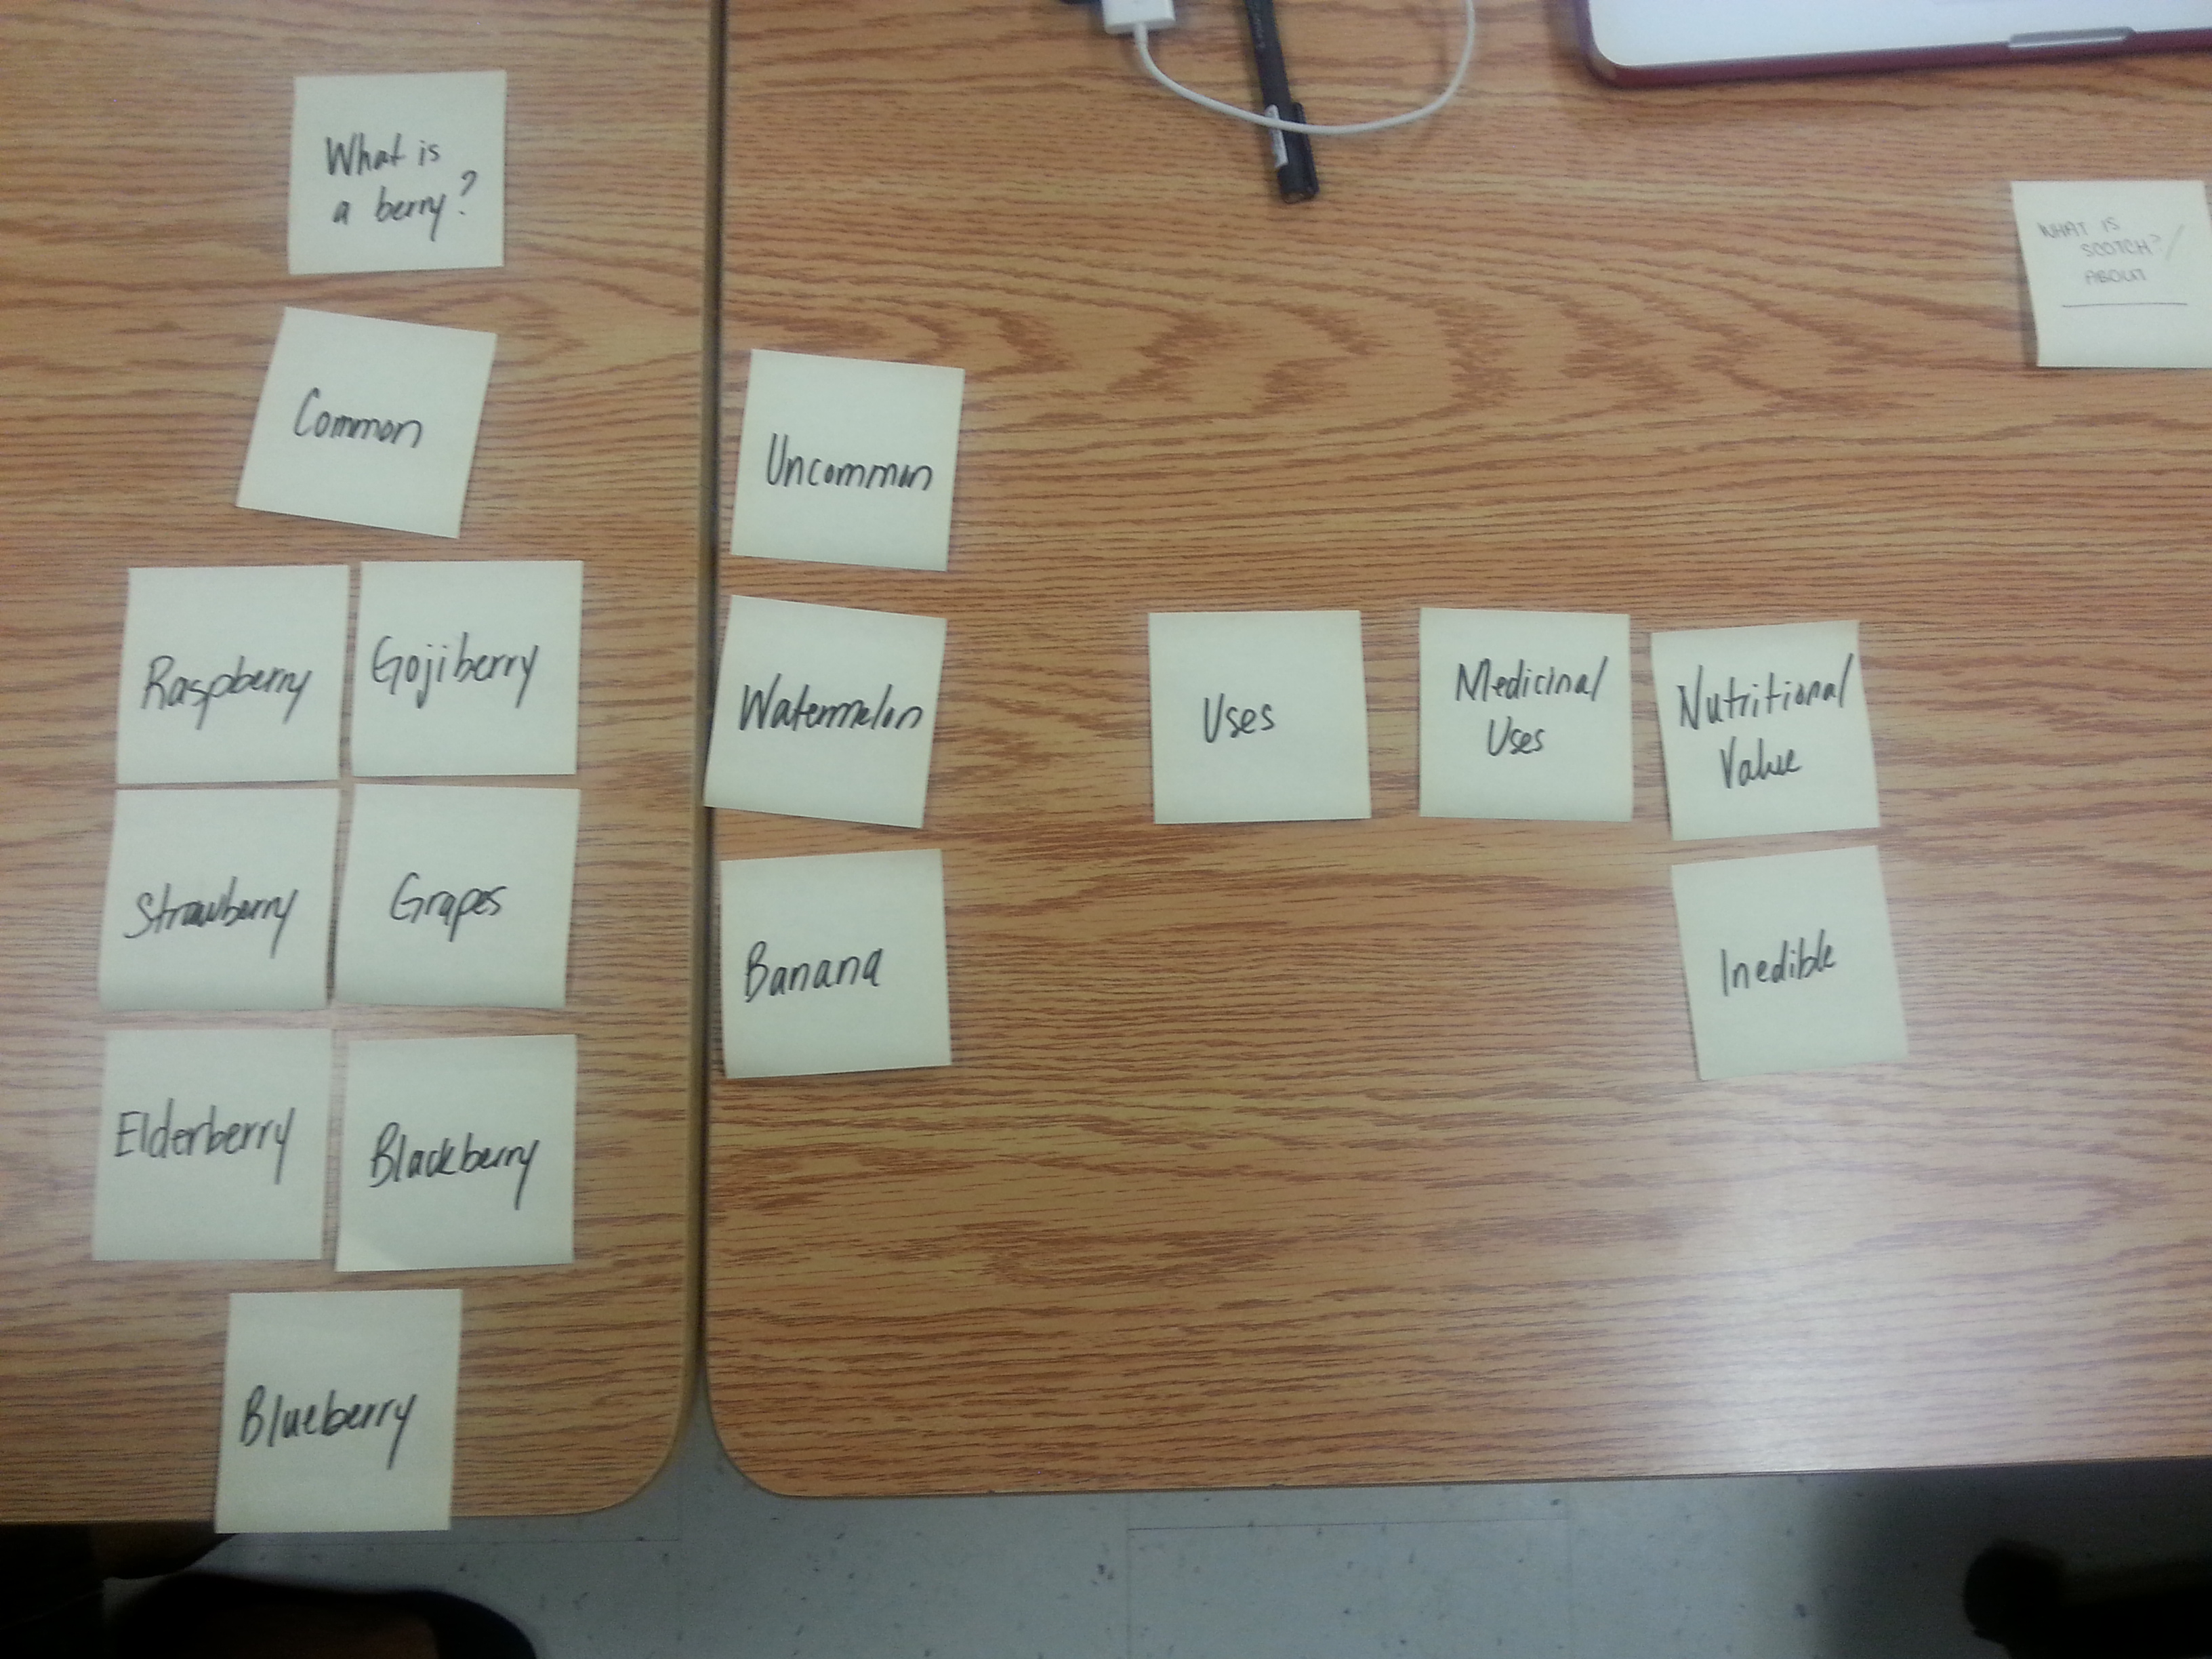 What is
a berry?
Common
Raspberry
Gojiberry
Strawberry
Grapes
Elderberry
Blackberry
Blueberry
Uncommon
Watermelon
Banana
Uses
Medicinal
Uses
Nutritional
Value
Inedible
WHAT IS
SCOTCH? /
ABOUT